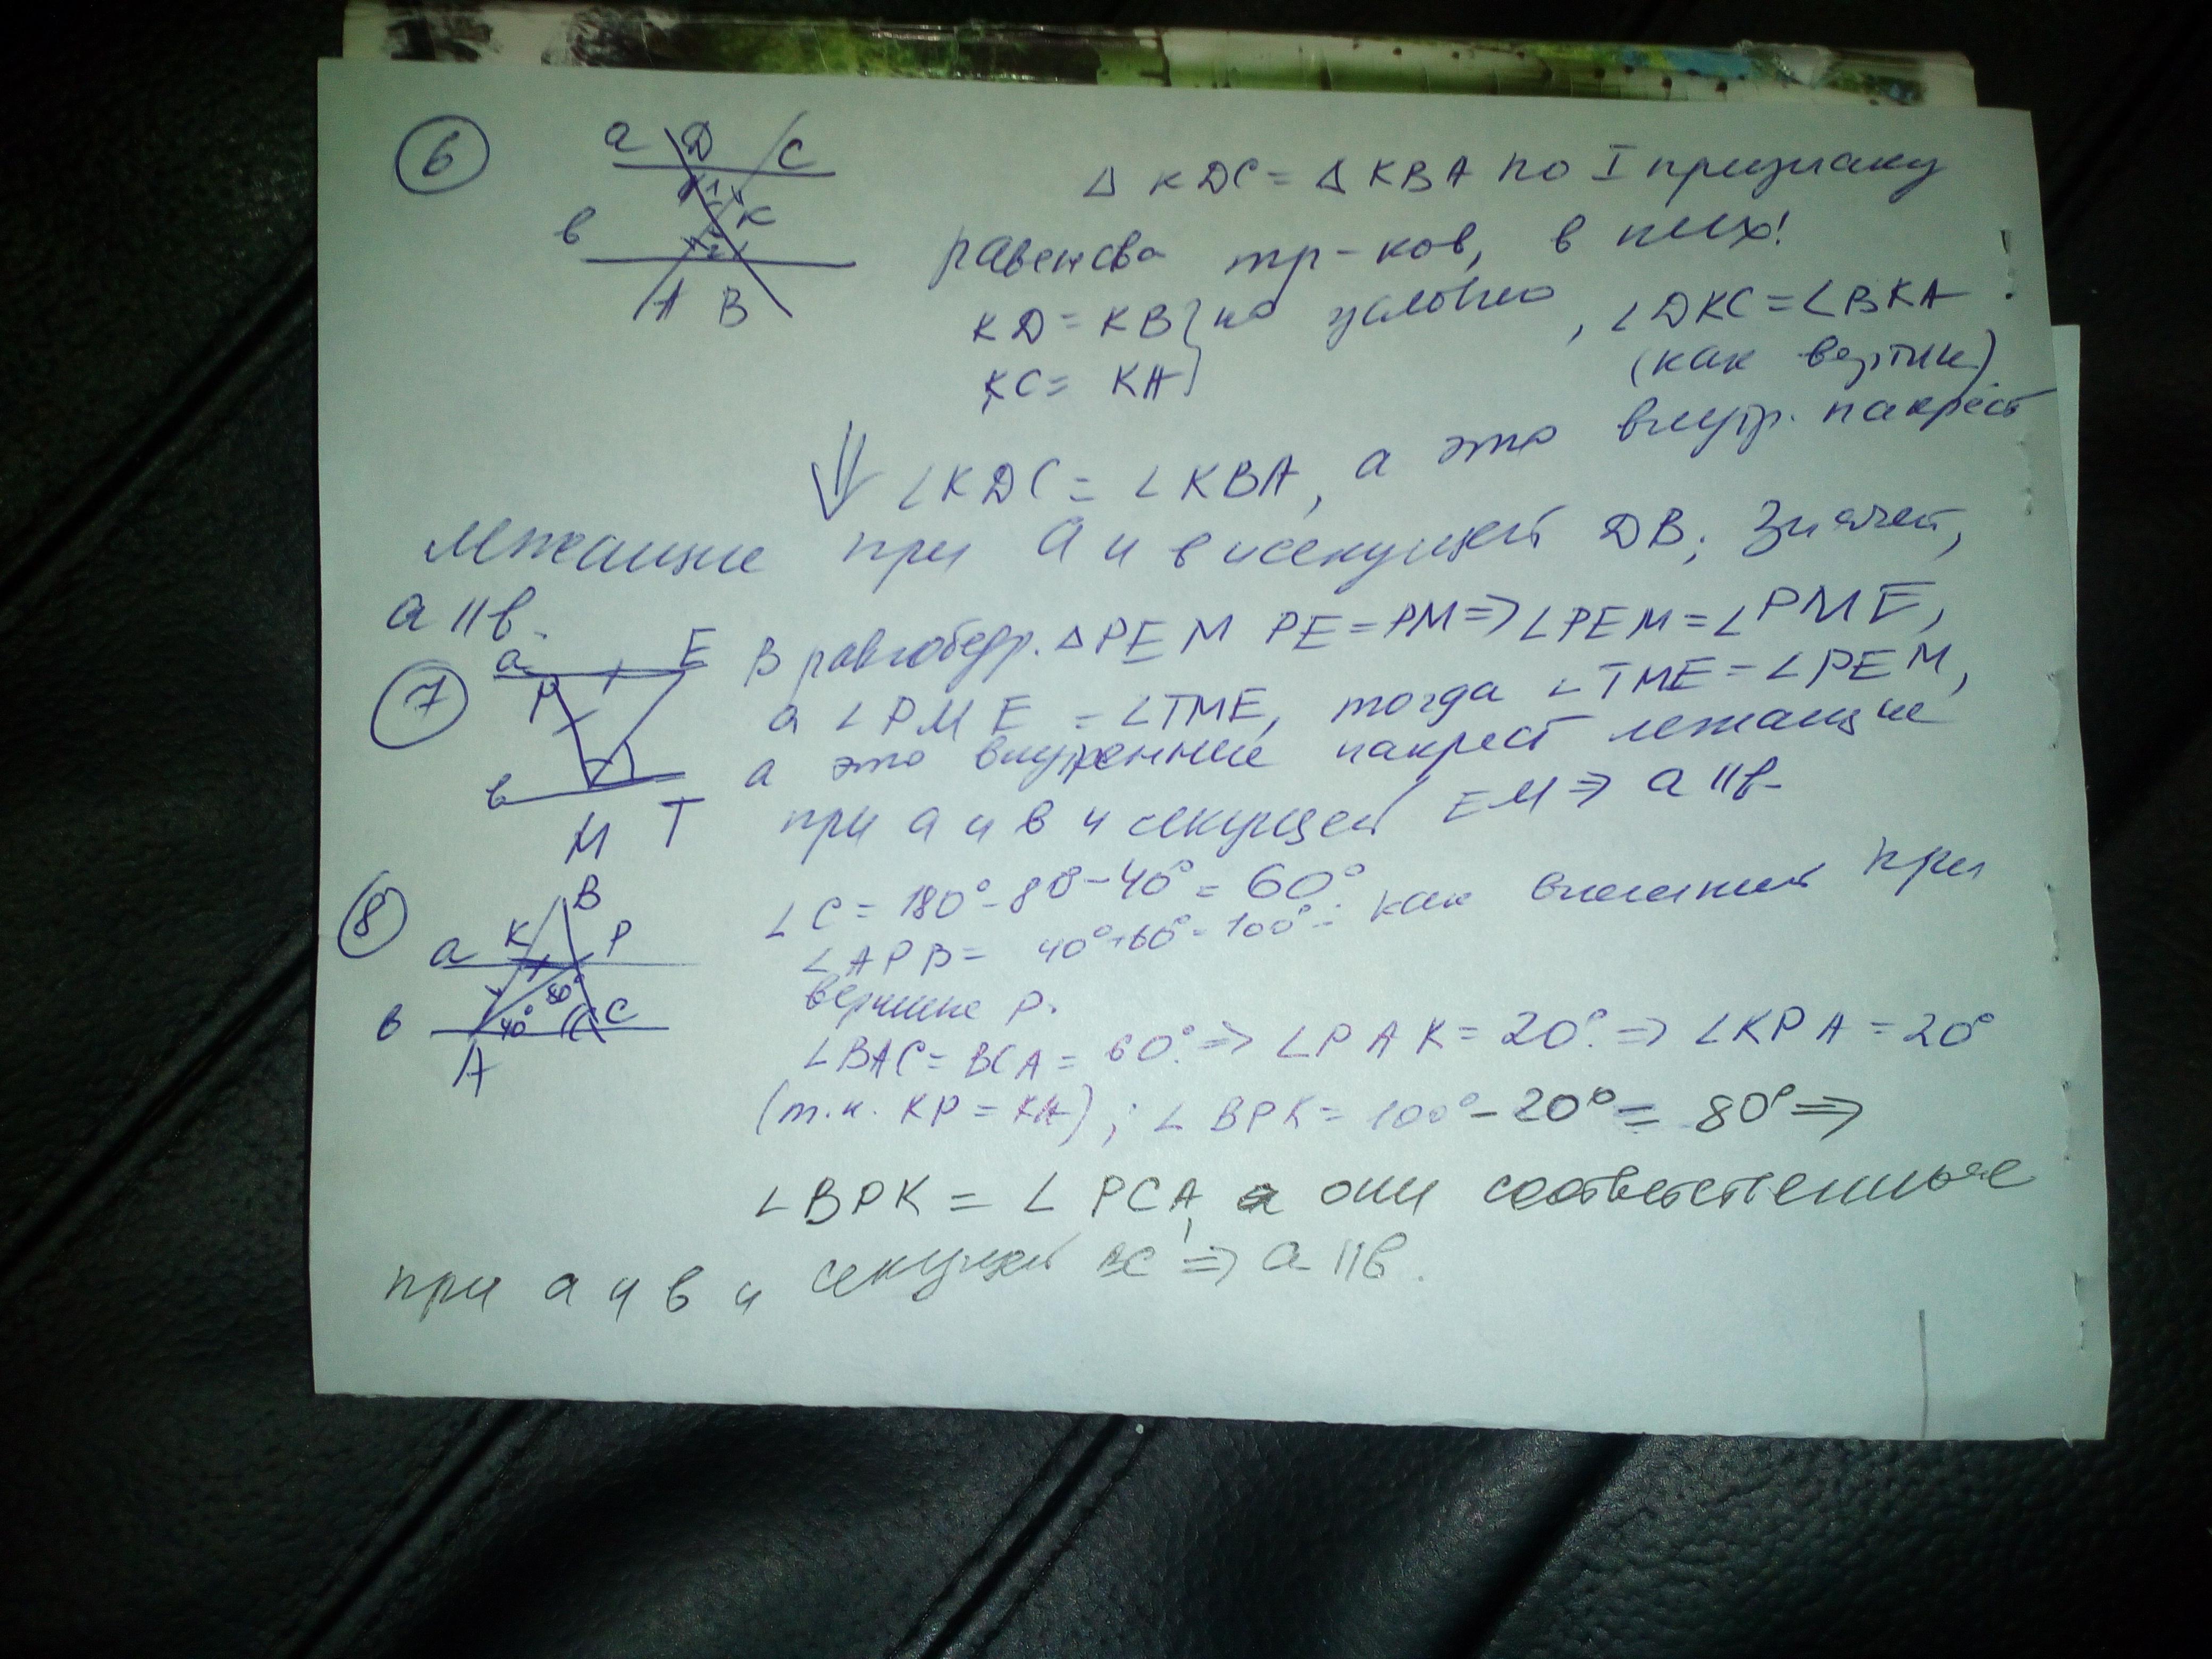 6
а D C
в K
1
2
А В
Δ KDC = Δ KBA по I признаку
равенсва тр-ков, в них!
KD = KB } по условию, ∠DKC = ∠BKA
KC = KA (как вертик)
⇓ ∠KDC = ∠KBA, а это внутр. накрест
лежащие при а и в и секущей DB; Значит,
а || в.
7
а E
P
в
M T
В равнобедр. Δ PEM PE = PM ⇒ ∠PEM = ∠PME,
а ∠PME = ∠TME, тогда ∠TME = ∠PEM,
а это внутренние накрест лежащие
при а и в и секущей EM ⇒ а || в
8
B
K P
а
80°
в 40° C
A
∠C = 180° - 80 - 40° = 60°
∠APB = 40° + 60° = 100° - как внешний при
вершине P.
∠BAC = BCA = 60° ⇒ ∠PAK = 20° ⇒ ∠KPA = 20°
(т.к. KP = KA); ∠BPK = 100° - 20° = 80° ⇒
∠BPK = ∠PCA, а они соответственные
при а и в и секущей BC ⇒ а || в.